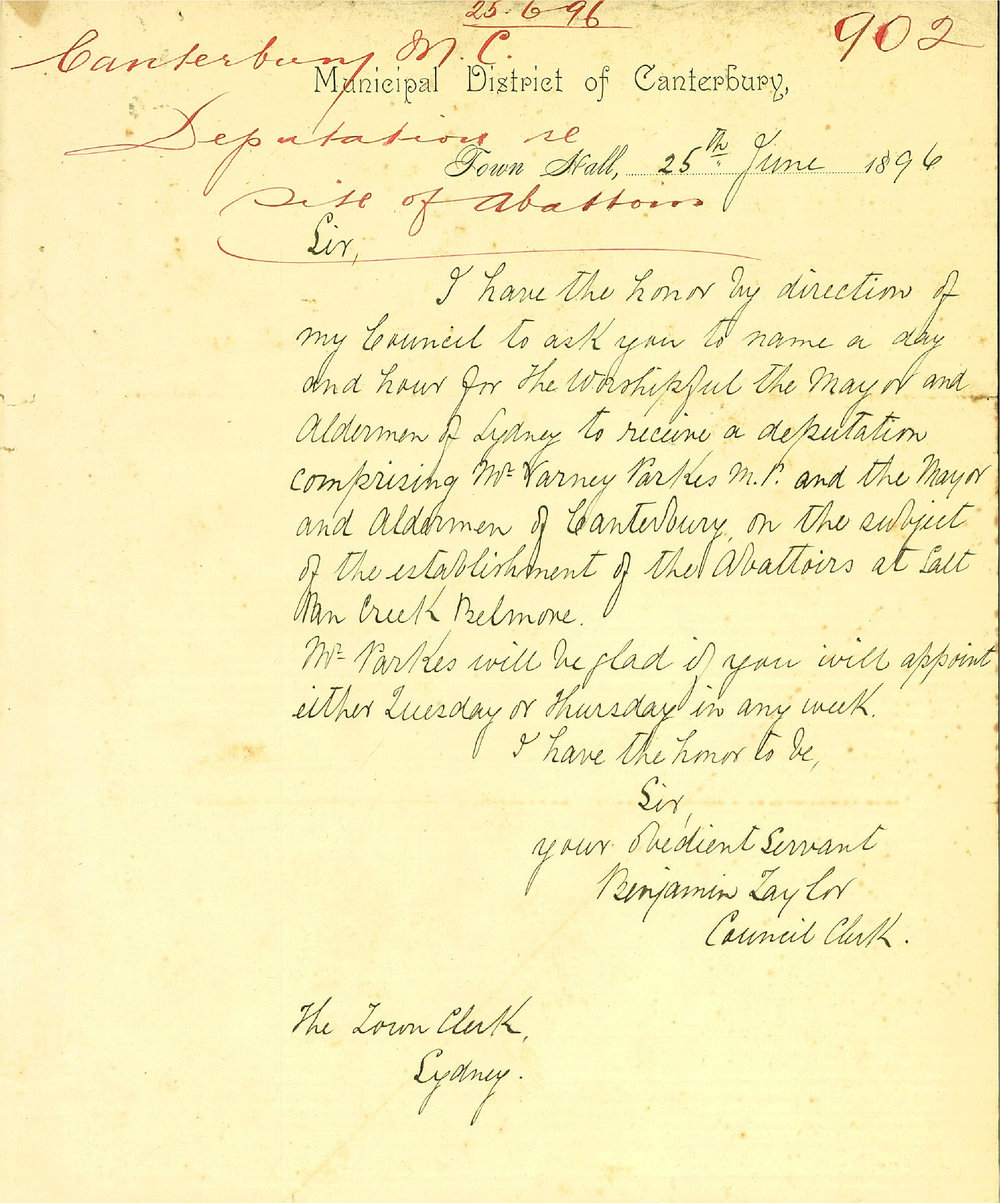 25-6-96
902
Canterbury M.C.
Municipal District of Canterbury,
Deputation re
Town Hall, 25th June 1896
Site of Abattoirs
Sir,
I have the honor by direction of
my Council to ask you to name a day
and hour for the Worshipful the Mayor and
Aldermen of Sydney to receive a deputation
comprising Mr Varney Parkes M.P. and the Mayor
and Aldermen of Canterbury, on the subject
of the establishment of the Abattoirs at Salt
Pan Creek Belmore.
Mr Parkes will be glad if you will appoint
either Tuesday or Thursday in any week.
I have the honor to be,
Sir,
your obedient Servant
Benjamin Taylor
Council Clerk.
The Town Clerk,
Sydney.